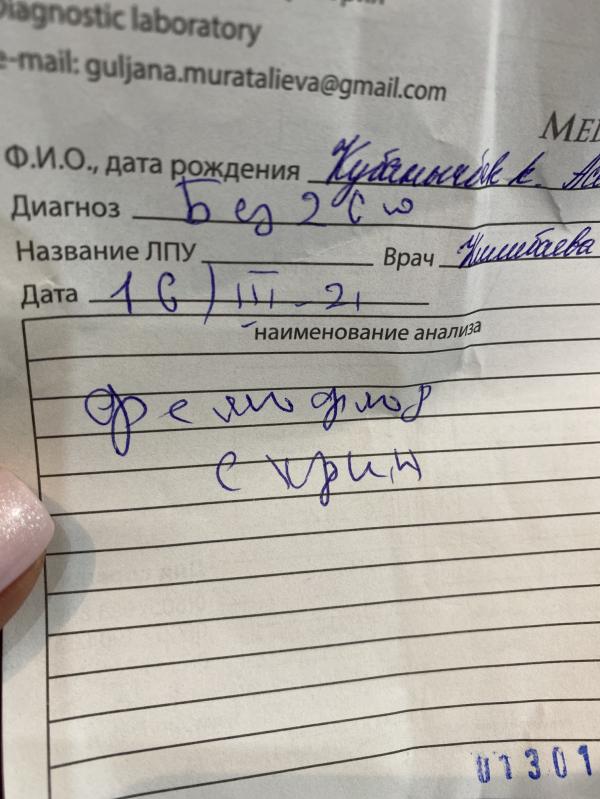 Diagnostic laboratory
e-mail: guljana.muratalieva@gmail.com
Ф.И.О., дата рождения Кубанычбек к.
Диагноз Без 2 с ю
Название ЛПУ Врач
Дата 16) III-21
наименование анализа
фемофлор
скрин
01301